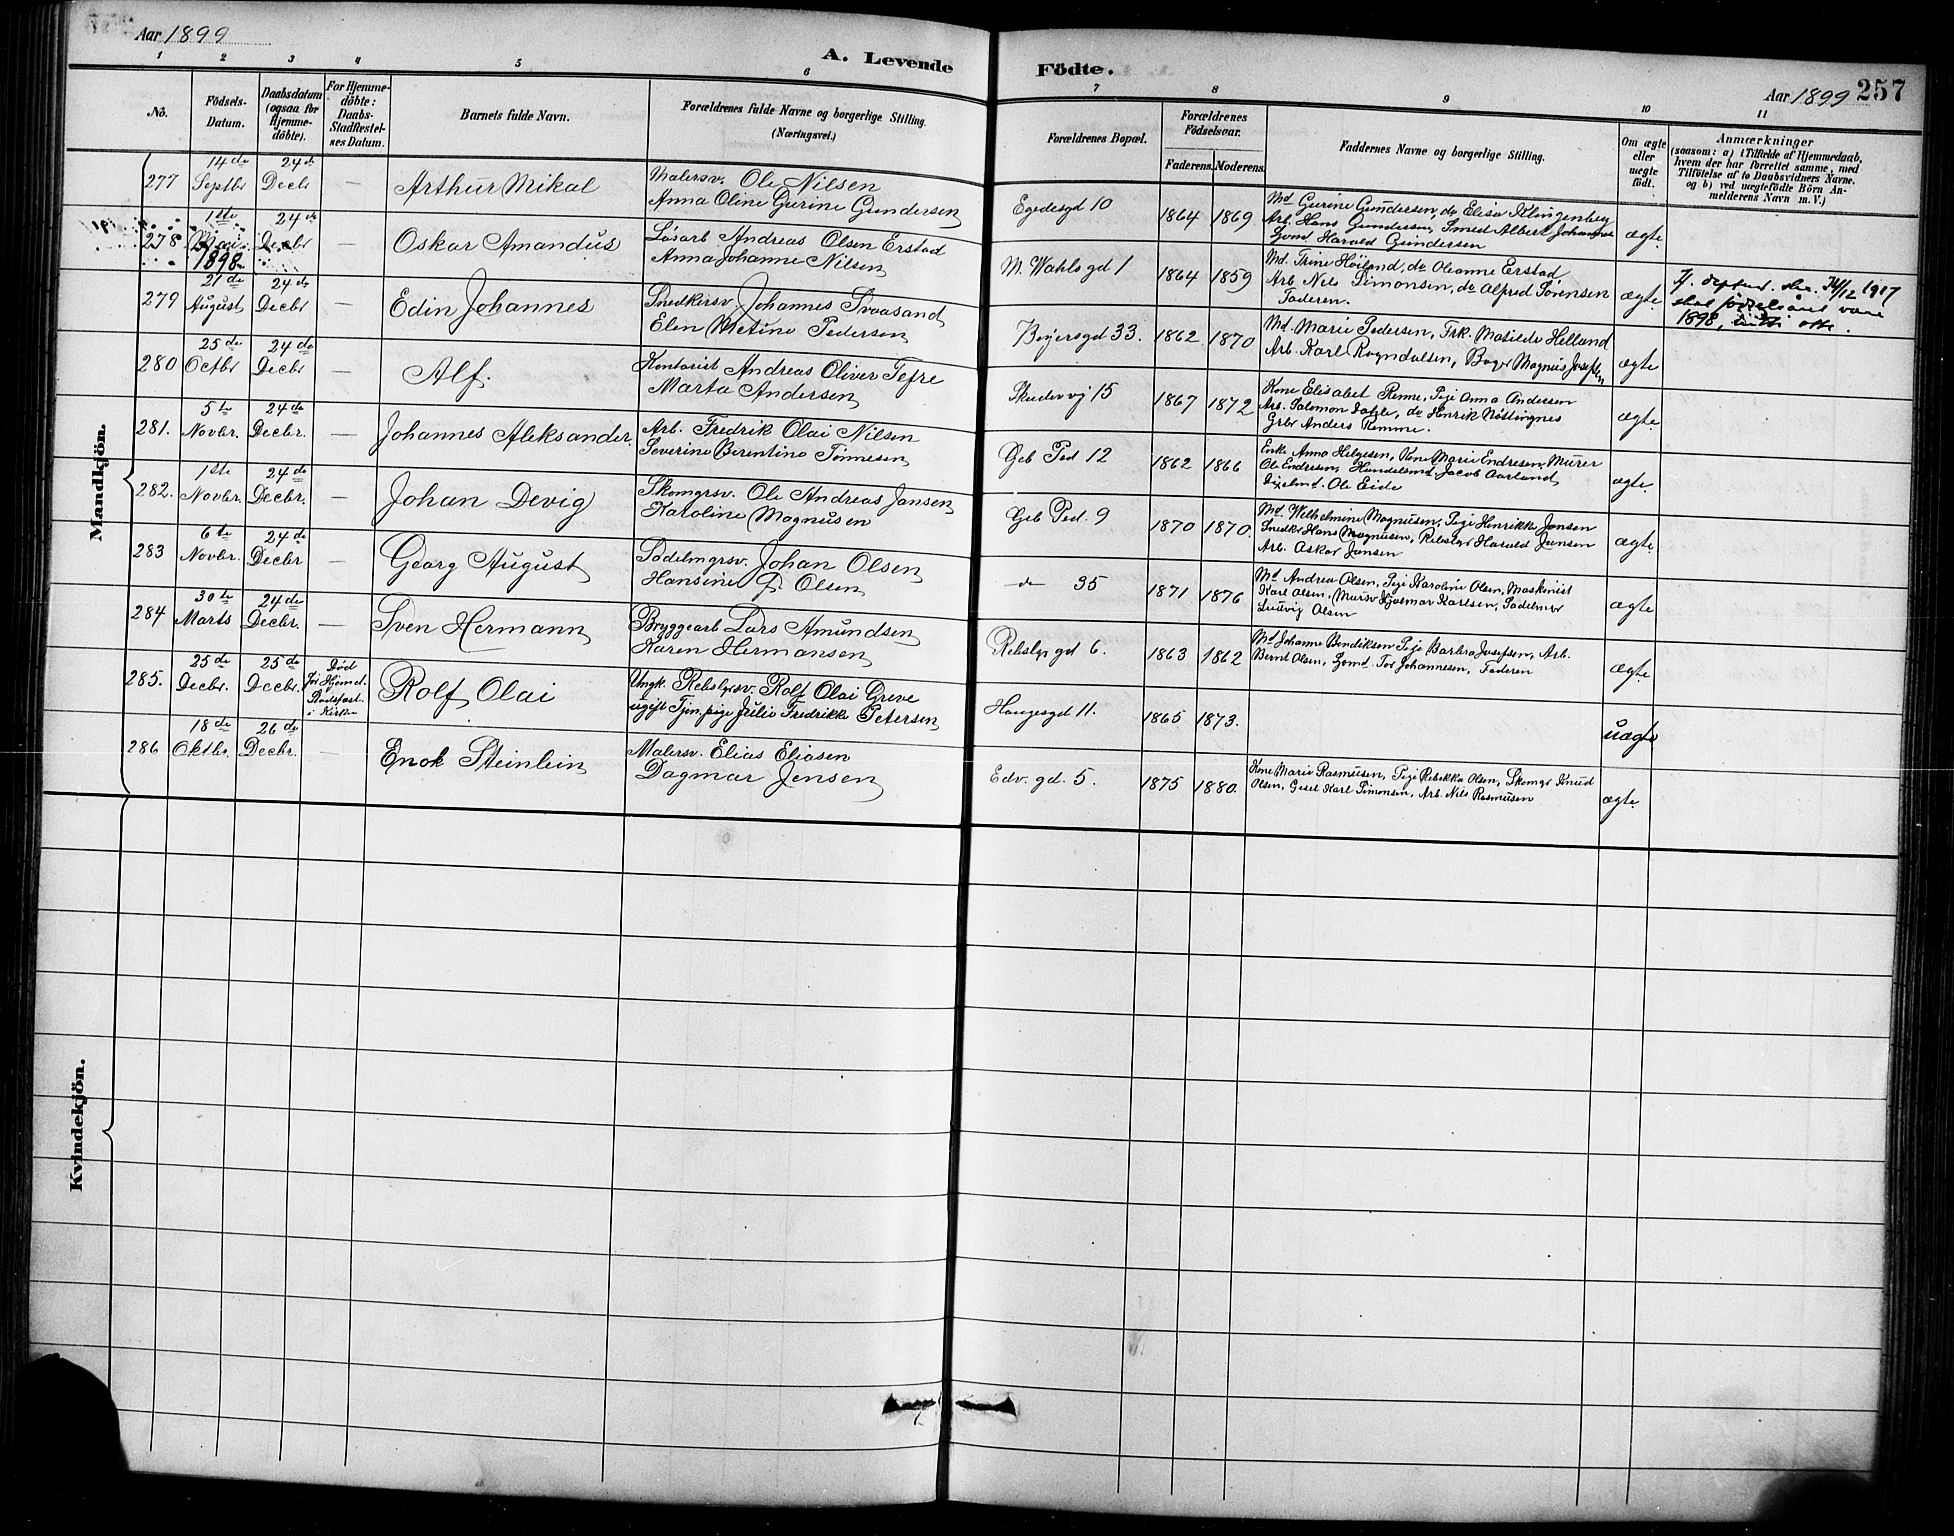 Aar 1899
A. Levende Födte.
Aar 1899 257
1 2 3 4 5 6 7 8 9 10 11
No.
Födsels-Datum.
Daabsdatum (ogsaa for Hjemme-döbte).
For Hjemme-döbte: Daabs-Stadfæstel-ses Datum.
Barnets fulde Navn.
Forældrenes fulde Navne og borgerlige Stilling.
(Næringsvei.)
Forældrenes Bopæl.
Forældrenes Födselsaar.
Faderens. Moderens.
Faddernes Navne og borgerlige Stilling.
Om ægte eller uægte födt.
Anmærkninger
(saasom: a) i Tilfælde af Hjemmedaab,
hvem der har forrettet samme, med
Tilföielse af to Daabsvidners Navne,
og b) ved uægtefödte Börn An-
melderens Navn m. V.)
Mandkjön.
277 14de Septbr 24de Decbr — Arthur Mikal
Malersv. Ole Nilsen
Anna Oline Gurine Gundersen
Egedesgd 10 1864 1869
Md Gurine Gundersen, do Elisa Klingenberg
Arb. Hans Gundersen, Smed Albert Johannes
Gvmd Harald Gundersen
ægte
278 1ste Mai 1898 24de Decbr — Oskar Amandus
Løsarb Andreas Olsen Erstad
Anna Johanne Nilsen
M. Wahls gd 1 1864 1859
Md. Trine Höiland, do Oleanne Erstad
Arb. Nils Simonsen, do Alfred Sørensen
Faderen.
ægte
If. depten. skr. 14/12 1917
skal fødselsåret være
1898, otte.
279 21de August 24de Decbr — Edin Johannes
Snedkersv Johannes Svaasand
Elen Metine Pedersen
Beyersgd 33. 1862 1870
Md. Marie Pedersen, Frk. Matilde Helland
Arb. Karl Rogndalsen, Bager Magnus Josefsen
ægte
280 25de Octbr 24de Decbr — Alf.
Kontorist Andreas Oliver Tefre
Marta Andersen
Skudevvj 15 1867 1872
Kone Elisabet Remme, Pige Anna Andersen
Arb. Salomon Dahle, do Henrik Nøttingnes
Grbr Anders Remme.
ægte
281. 5te Novbr. 24de Decbr. — Johannes Aleksander
Arb. Fredrik Olai Nilsen
Severine Berentine Tønnesen
Geb Ped 12 1862 1866
Enke Anna Helgesen, Kone Marie Endresen, Murer
Ole Endresen, Handelsmd Jacob Aarland
Dixelmd. Ole Eide
ægte
282. 1ste Novbr. 24de Decbr. — Johan Devig
Skomgrsv. Ole Andreas Jansen
Katoline Magnusen
Geb Ped. 9 1870 1870.
Md. Wilhelmine Magnusen, Pige Henrikke Jansen
Snedkr Hans Magnusen, Rebslgr Harald Jansen
Arb. Oskar Jansen
ægte
283 6te Novbr. 24de Decbr — Georg August
Sadelmgrsv. Johan Olsen
Hansine P. Olsen
do 35 1871 1876
Md Andrea Olsen, Pige Karoline Olsen, Maskinist
Karl Olsen, Mursv Hjalmar Karlsen, Sadelmgr
Ludvig Olsen
ægte
284 30te Marts 24de Decbr. — Sven Hermann
Bryggearb Lars Amundsen
Karen Hermansen
Rebslgr gd 6. 1863 1862
Md Johanne Bendiksen Pige Barbra Josefsen, Arb.
Bernt Olsen, Gvmd. Tor Johannesen, Faderen
ægte
285. 25de Decbr. 25de Decbr. Død för Hjemd. Stadfæst. i Kirke Rolf Olai
Ungk. Rebslgrsv. Rolf Olai Greve
ugift Tjen. pige Julie Fredrikke Petersen
Haugesgd 11. 1865 1873.
uægte
286 18de Oktbr. 26de Decbr. — Enok Steinlein
Malersv. Elias Eliasen
Dagmar Jensen
Edv. gd. 5. 1875 1880.
Kone Marie Rasmusen, Pige Rebekka Olsen, Skomgr Knud
Olsen, Gesel Karl Simonsen, Arb. Nils Rasmusen
ægte
Kvindekjön.